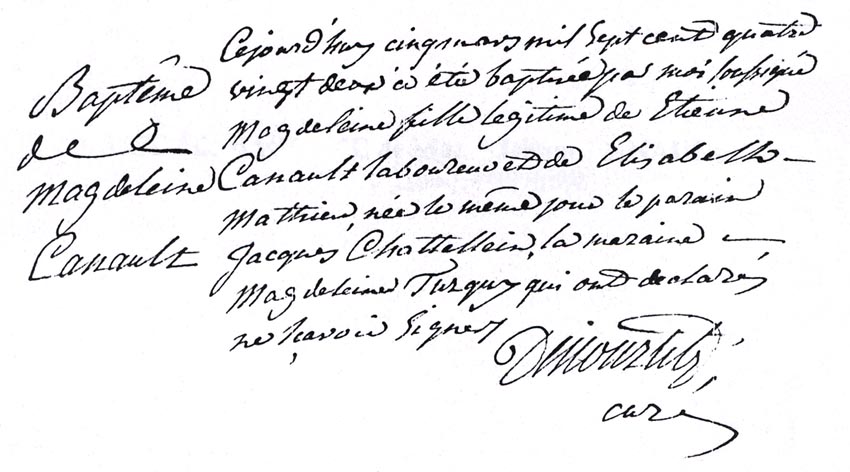 Baptême
de
Magdeleine
Canault
Cejourd'huy cinq mars mil sept cent quatre
vingt deux a été baptisée par moi soussigné
Magdeleine fille légitime de Etienne
Canault laboureur et de Elisabeth
Mathieu, née le même jour le parain
Jacques Chattellein, la maraine
Magdeleine Turquy qui ont declarés
ne sçavoir signer
curé